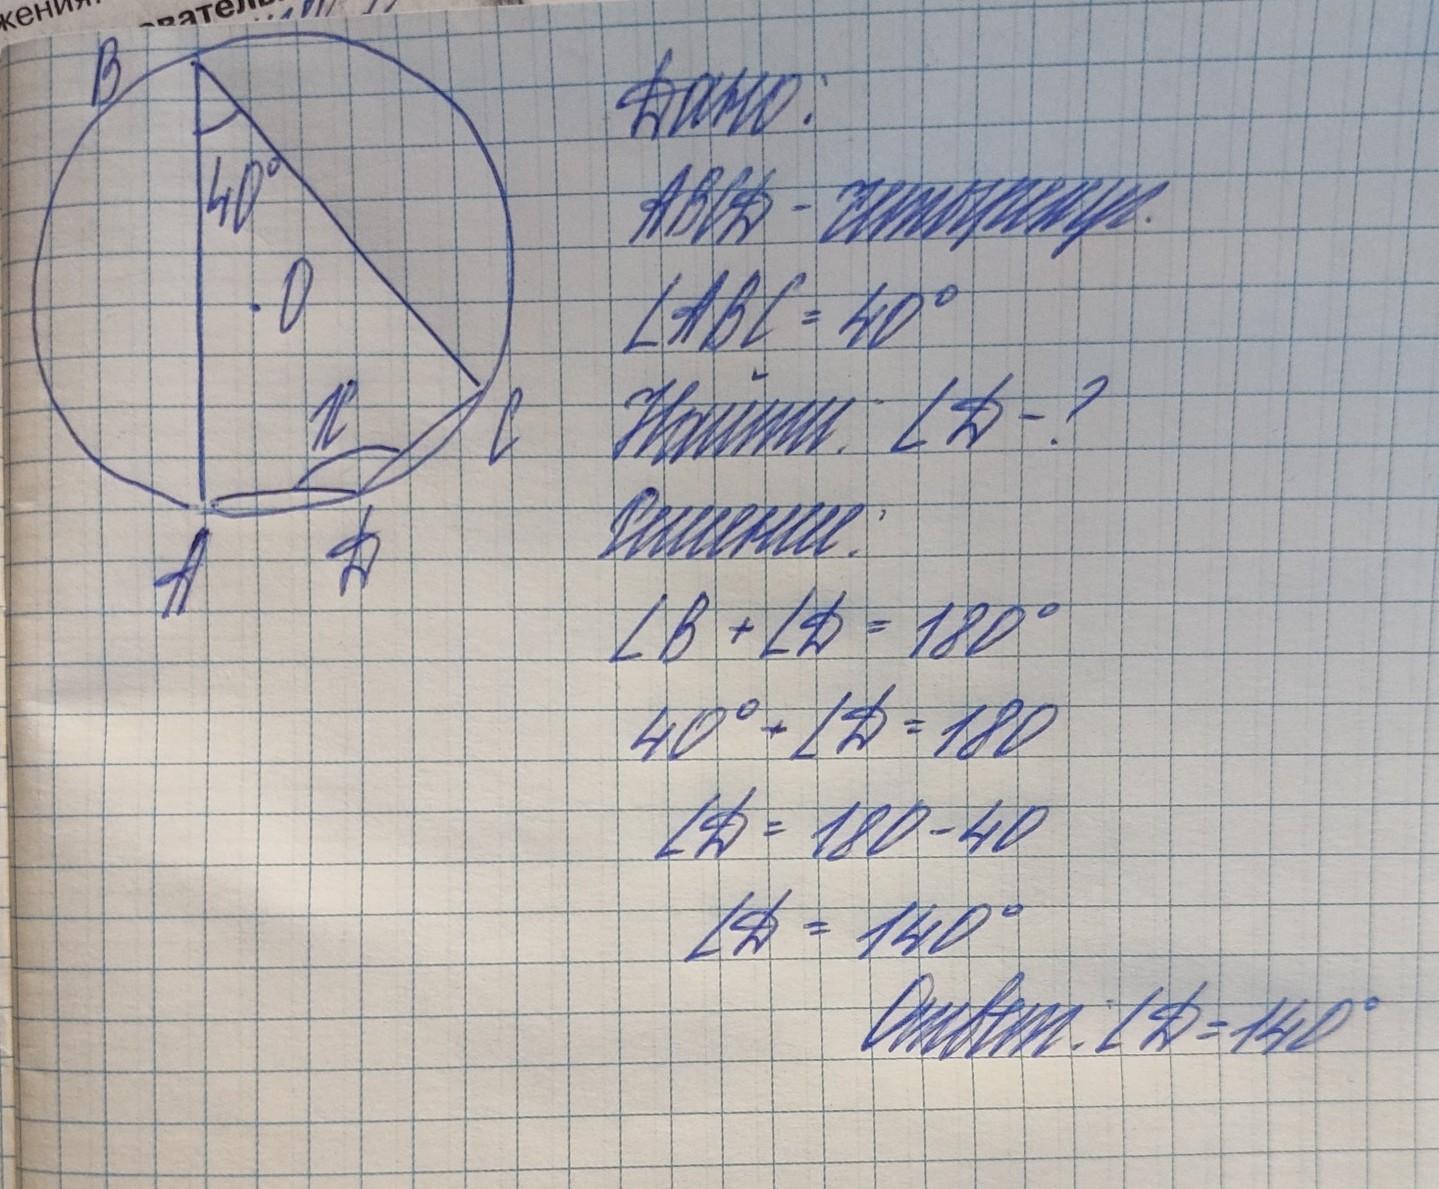 жения.
ователь
B
40°
O
x
C
A
D
Дано:
ABCD - четырехуг.
∠ABC = 40°
Найти: ∠D - ?
Решение:
∠B + ∠D = 180°
40° + ∠D = 180
∠D = 180 - 40
∠D = 140°
Ответ: ∠D = 140°